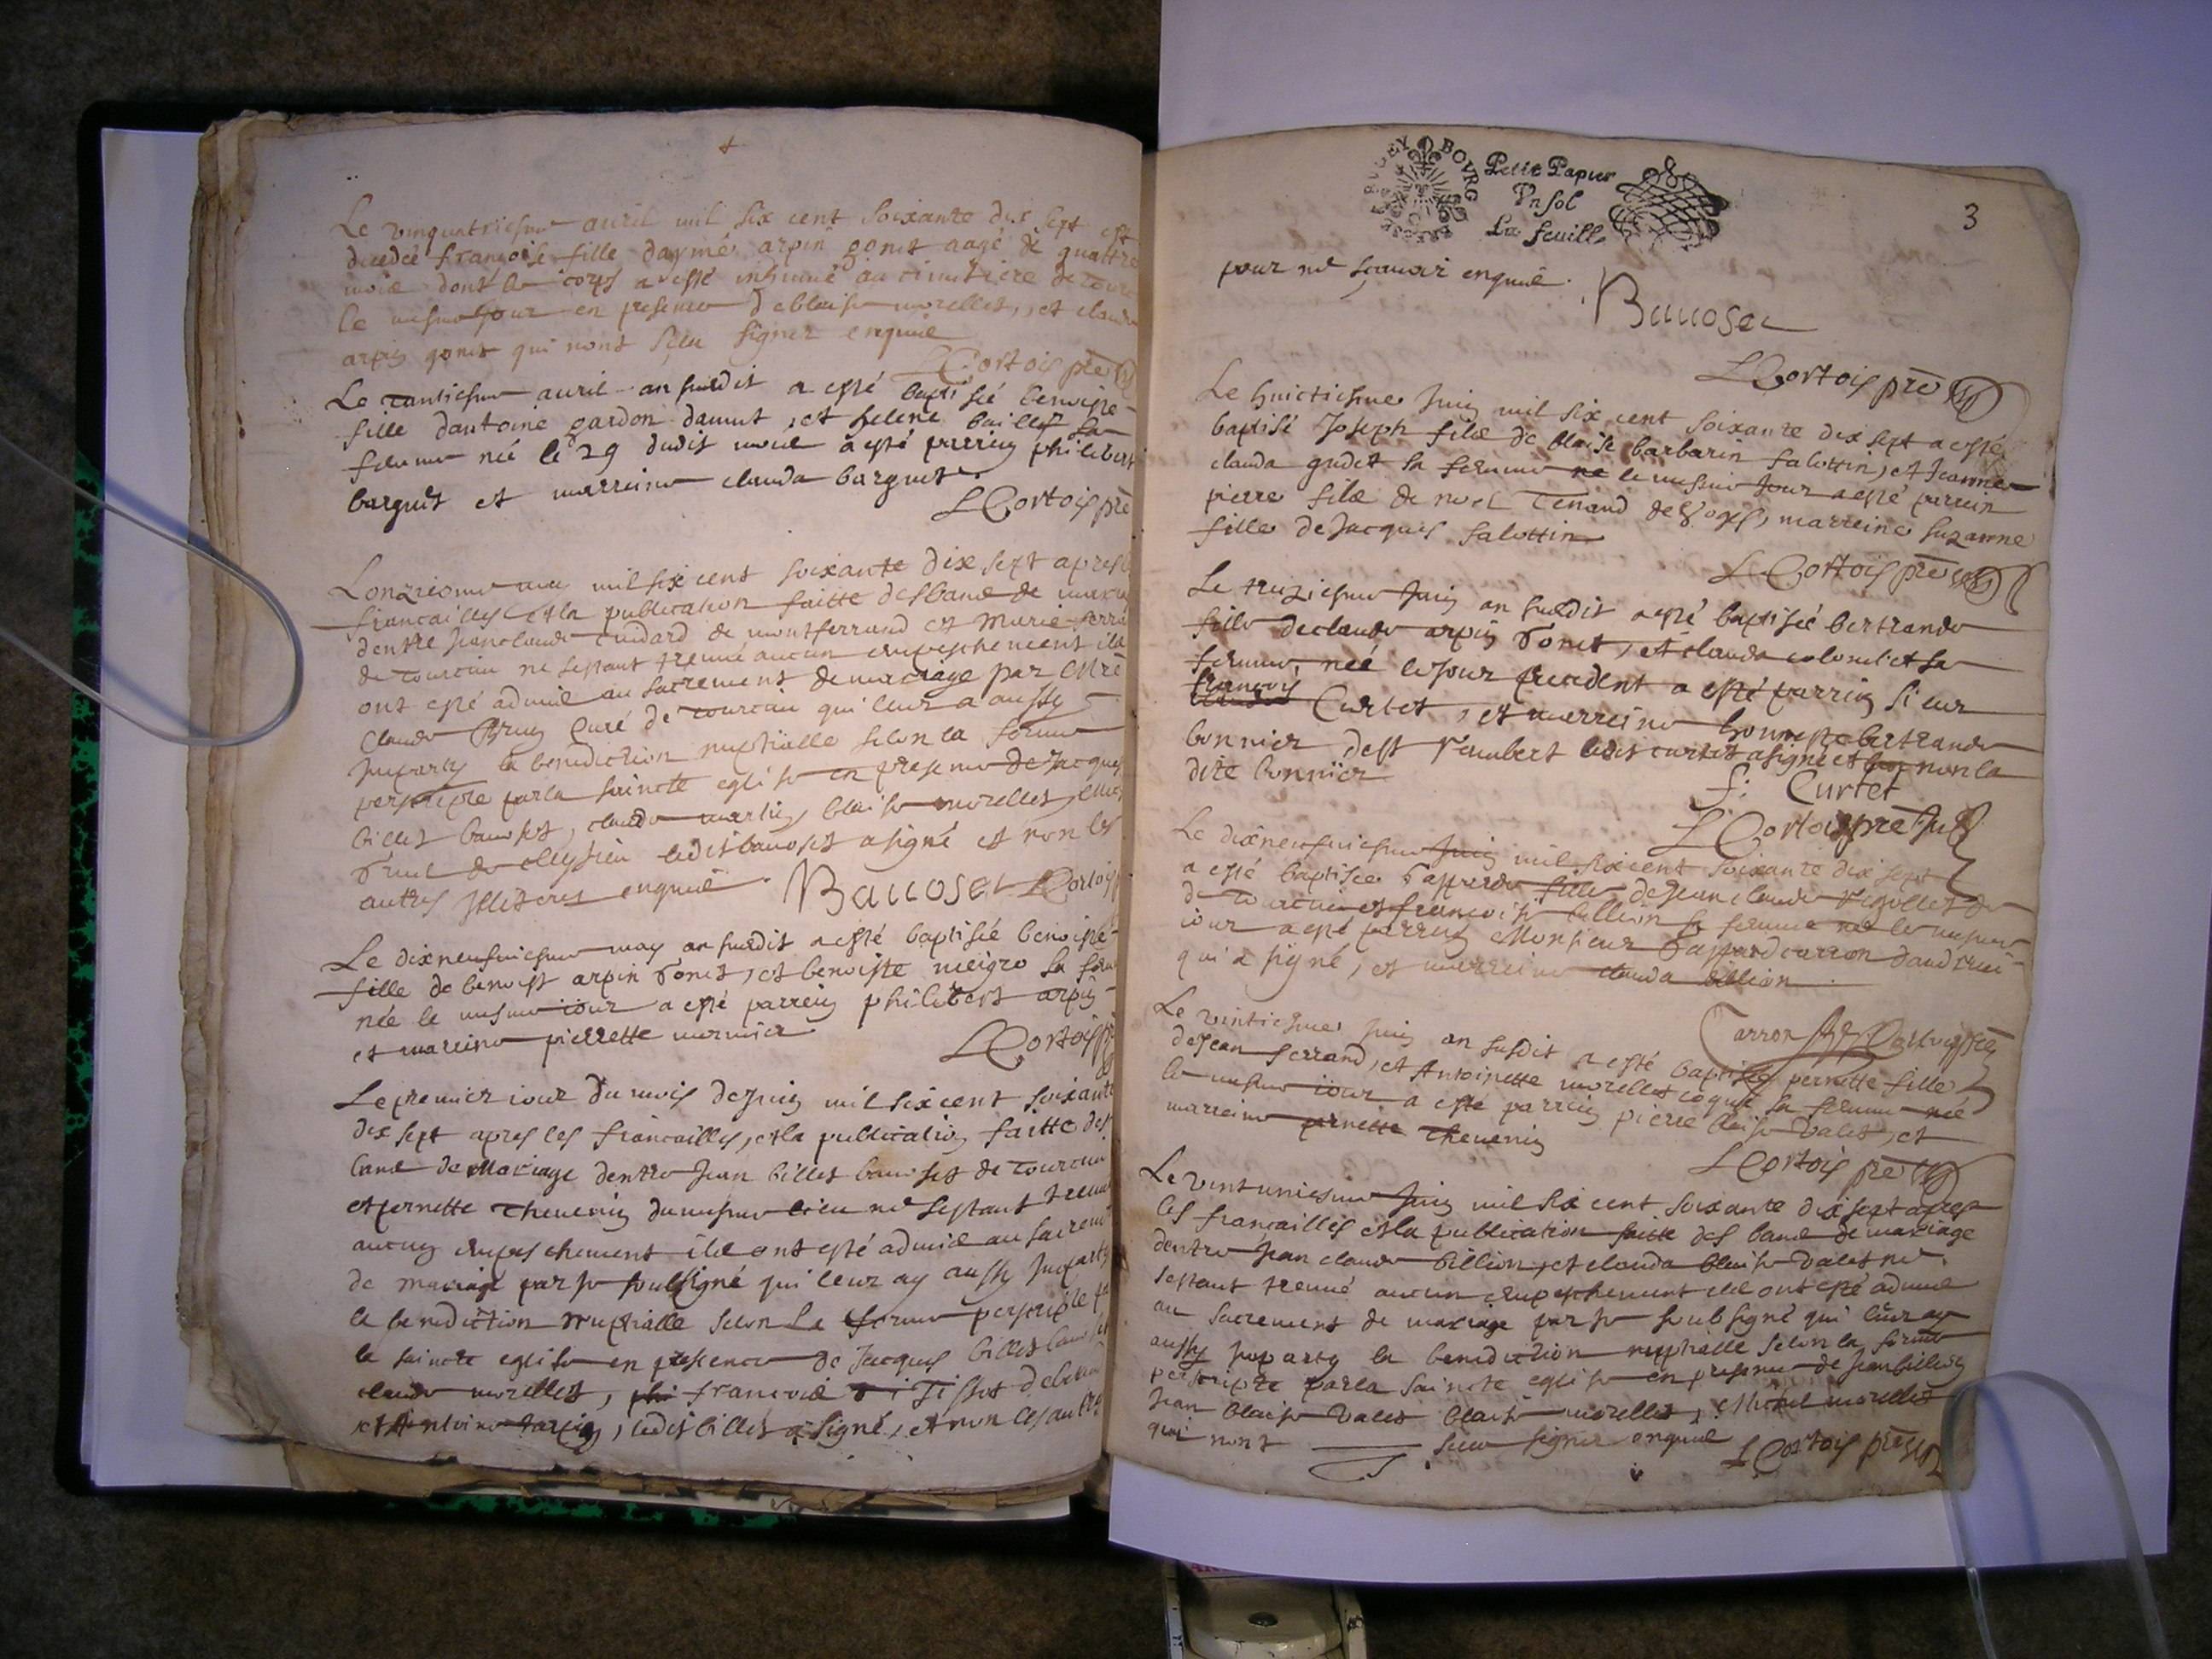 Le vinquatriesme auril mil six cent soixante dix sept est
decedée francoise fille daymé arpin gonet aagé de quattre
mois dont le corps a esté inhumé au cimetiere de
le mesme jour en presence de blaise morellet, et claude
arpin gonet qui nont sceu signer enquis
LCortois pre
Le trantiesme auril an susdit a esté baptisée benoiste
fille dantoine gardon danut, et helene baillet sa
femme née le 29 dudit mois a esté parrein philibert
barquet et marreine clauda barquet.
LCortois pre
Lonziesme may mil six cent soixante dix sept apres l
fiancailles et la publication faitte des bans de maria
dentre Jean claude cuidard de montferrand et Marie ferra
de tourcin ne sestant treuué aucun empeschement ils
ont esté admis au sacrement de mariage par
claude curé de tourcin qui leur a aussy
Imparty la benediction nuptialle selon la forme
perscripte par la saincte eglise en presence de Jacques
billet bauoset, claude martin, blaise morellet,
ledit bauoset a signé et non les
autres enquis. Bauoset LCortois
Le dixneufuiesme may an susdit a esté baptisée benoiste
fille de benoist arpin gonet, et benoiste meigro sa fem
née le mesme iour a esté parrein philibert arpin
et marreine pierrette mermier
LCortois
Le premier iour du mois de Juin mil six cent soixante
dix sept apres les fiancailles, et la publication faitte des
bans de Mariage dentre Jean billet bauoset de tourcin
et pernette theuenin du mesme lieu ne sestant treuué
aucun empeschement ils ont esté admis au sacrement
de mariage par je soubsigné qui leur ay aussy Imparty
la benediction nuptialle selon la forme perscripte p
la saincte eglise en presence de Jacques billet bauoset
claude morellet, francois tissot
et Antoine, ledit billet a signé, et non les autres
BVGEY BOVRG
Petit Papier
Vn sol
La feuille
3
pour ne scauoir enquis.
Bauoset
LCortois pre
Le huictiesme Juin mil six cent soixante dix sept a esté
baptisé Joseph fils de blaise barbarin falottin, et Jeanne
clauda gudet sa femme ne le mesme Jour a esté parrein
pierre fils de noel Tenand de, marreine suzanne
fille de Jacques falottin
LCortois pre
Le treziesme Juin an susdit a esté baptisée bertrande
fille de claude arpin gonet, et clauda colomb et sa
femme, née le Jour precedent a esté parrein sieur
françois Curtet, et marreine honneste bertrande
bonnier de st rembert ledit curtet a signé et non la
dite bonnier
f: Curtet
LCortois pre
Le dixneufuiesme Juin mil six cent soixante dix sept
a esté baptisée gasparde fille de Jean claude
de tourcin et francoise billion sa femme née le mesme
iour a esté parrein Monsieur gaspard carron
qui a signé, et marreine clauda billion
Carron LCortois pre
Le vintiesme Juin an susdit a esté baptisée pernette fille
de Jean ferrand, et Antoinette morellet coquet sa femme née
le mesme iour a esté parrein pierre blaise valet, et
marreine pernette theuenin
LCortois pre
Le vintuniesme Juin mil six cent soixante dix sept apres
les fiancailles et la publication faitte des bans de mariage
dentre Jean claude billion, et clauda blaise valet ne
sestant treuué aucun empeschement ils ont esté admis
au sacrement de mariage par je soubsigné qui leur ay
aussy Imparty la benediction nuptialle selon la forme
perscripte par la saincte eglise en presence de Jean billion
Jean blaise valet blaise morellet, Michel morellet
qui nont sceu signer enquis LCortois pre